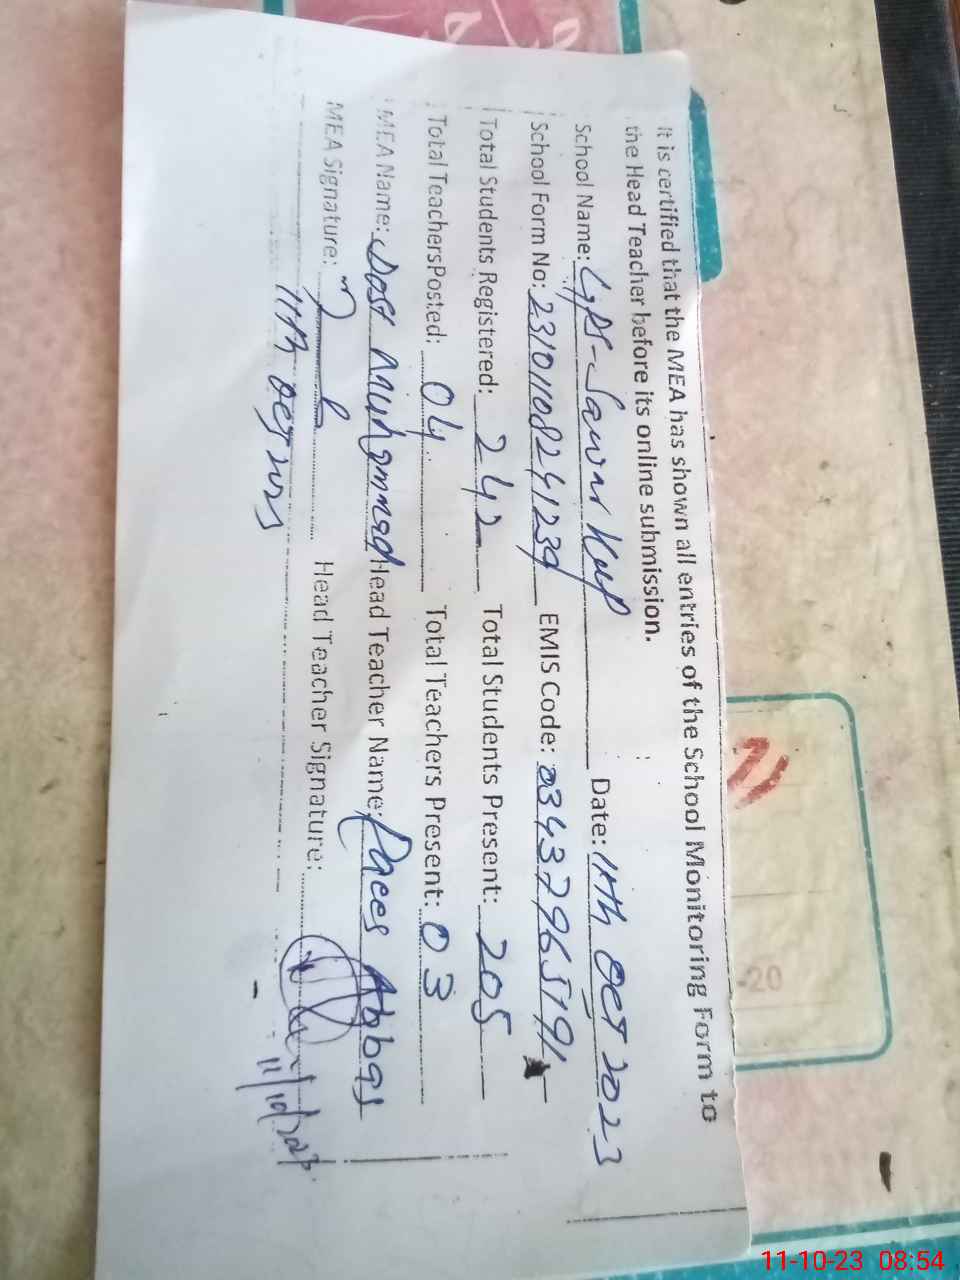 It is certified that the MEA has shown all entries of the School Monitoring Form to
the Head Teacher before its online submission.
School Name: GPS-Sawar Date: 11th Oct 2023
School Form No: 23101108241239 EMIS Code: 03437965191
Total Students Registered: 242 Total Students Present: 205
Total Teachers Posted: 04 Total Teachers Present: 03
MEA Name: Dost Muhammad Head Teacher Name: Raees Abbas
MEA Signature: Head Teacher Signature:
11th Oct 11/10/2023
-20
11-10-23 08:54